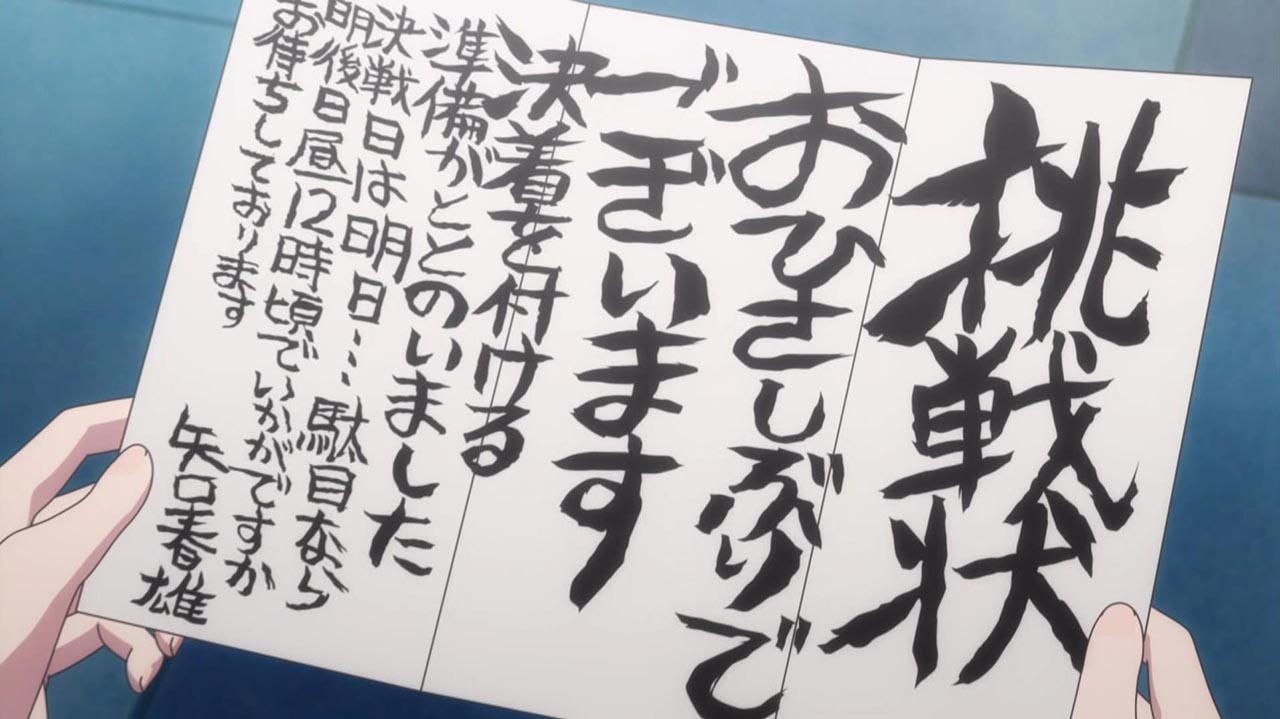 挑戦状
おひさしぶりで
ございます
決着を付ける
準備がととのいました
決戦日は明日…駄目なら
明後日昼12時頃でいかがですか
お待ちしております
矢口春雄